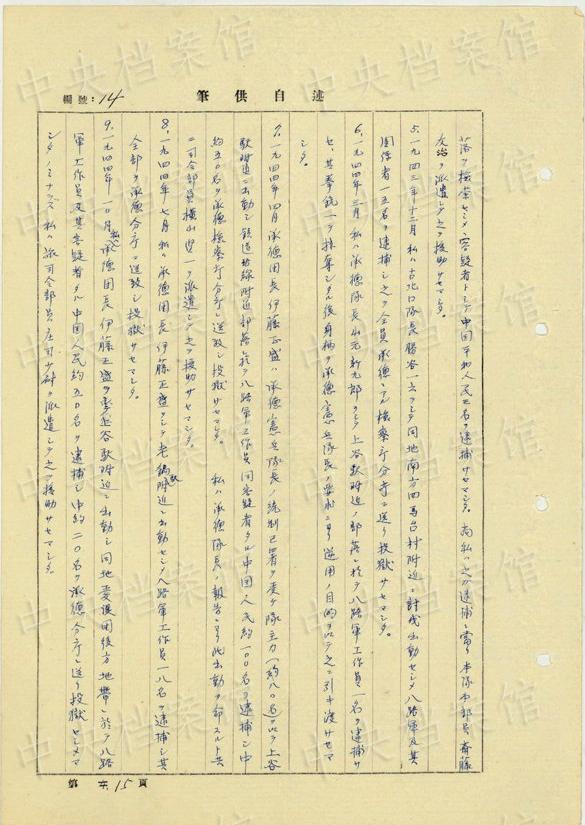 中央档案馆
述自供筆
編號：14
落ヲ檢索セシメ、容疑者トシテ中国平和人民七名ヲ逮捕サセマシタ。尚私ハ之ガ逮捕ニ當リ本隊本部員 斉藤
友治ヲ派遣シテ之ヲ援助サセマシタ。
5. 一九四三年十二月 私ハ古北口隊長勝谷一六ヲシテ同地南方四馬台村附近ニ討伐出動セシメ八路軍及其
関係者一五名ヲ逮捕シ之ヲ全員承德ニアル檢察庁分庁ニ送リ投獄サセマシタ。
6. 一九四四年三月 私ハ承德隊長山元新九郎ヲシテ上谷歓附近ノ部落ニ於テ八路軍工作員一名ヲ逮捕サ
セ、其拳銃一ヲ掠奪シタル後身柄ヲ承德憲兵隊長ノ要求ニヨリ逆用ノ目的ヲ以テ之ニ引キ渡サセマ
シタ。
7. 一九四四年四月 承德団長伊藤正盛ハ承德憲兵隊長ノ統制已署ヲ受ケ隊主力（約八〇名）ヲ以テ上谷
歓附近ニ出動シ鉄道沿線附近部落ニ於テ八路軍工作員同容疑者タル中国人民約一〇〇名ヲ逮捕シ中
約五〇名ヲ承德檢察庁分庁ニ送致シ投獄サセマシタ。 私ハ承德隊長ノ報告ニヨリ此出動ヲ命スルト共
ニ司令部員横山 一ヲ派遣シテ之ヲ援助サセマシタ。
8. 一九四四年七月 私ハ承德団長伊藤正盛ヲシテ老 附近ニ出動セシメ八路軍工作員一八名ヲ逮捕シ其
全部ヲ承德分庁ニ送致シ投獄サセマシタ。
9. 一九四四年一〇月 私ハ承德団長伊藤正盛ヲ 谷歓附近ニ出動シ同地愛護団後方地帯ニ於テ八路
軍工作員及其容疑者タル中国人民約五〇名ヲ逮捕シ中約二〇名ヲ承德分庁ニ送リ投獄セシメマ
シタ。ノミナラズ私ハ 司令部員庄司 ヲ派遣シテ之ヲ援助サセマシタ。
第 15 頁